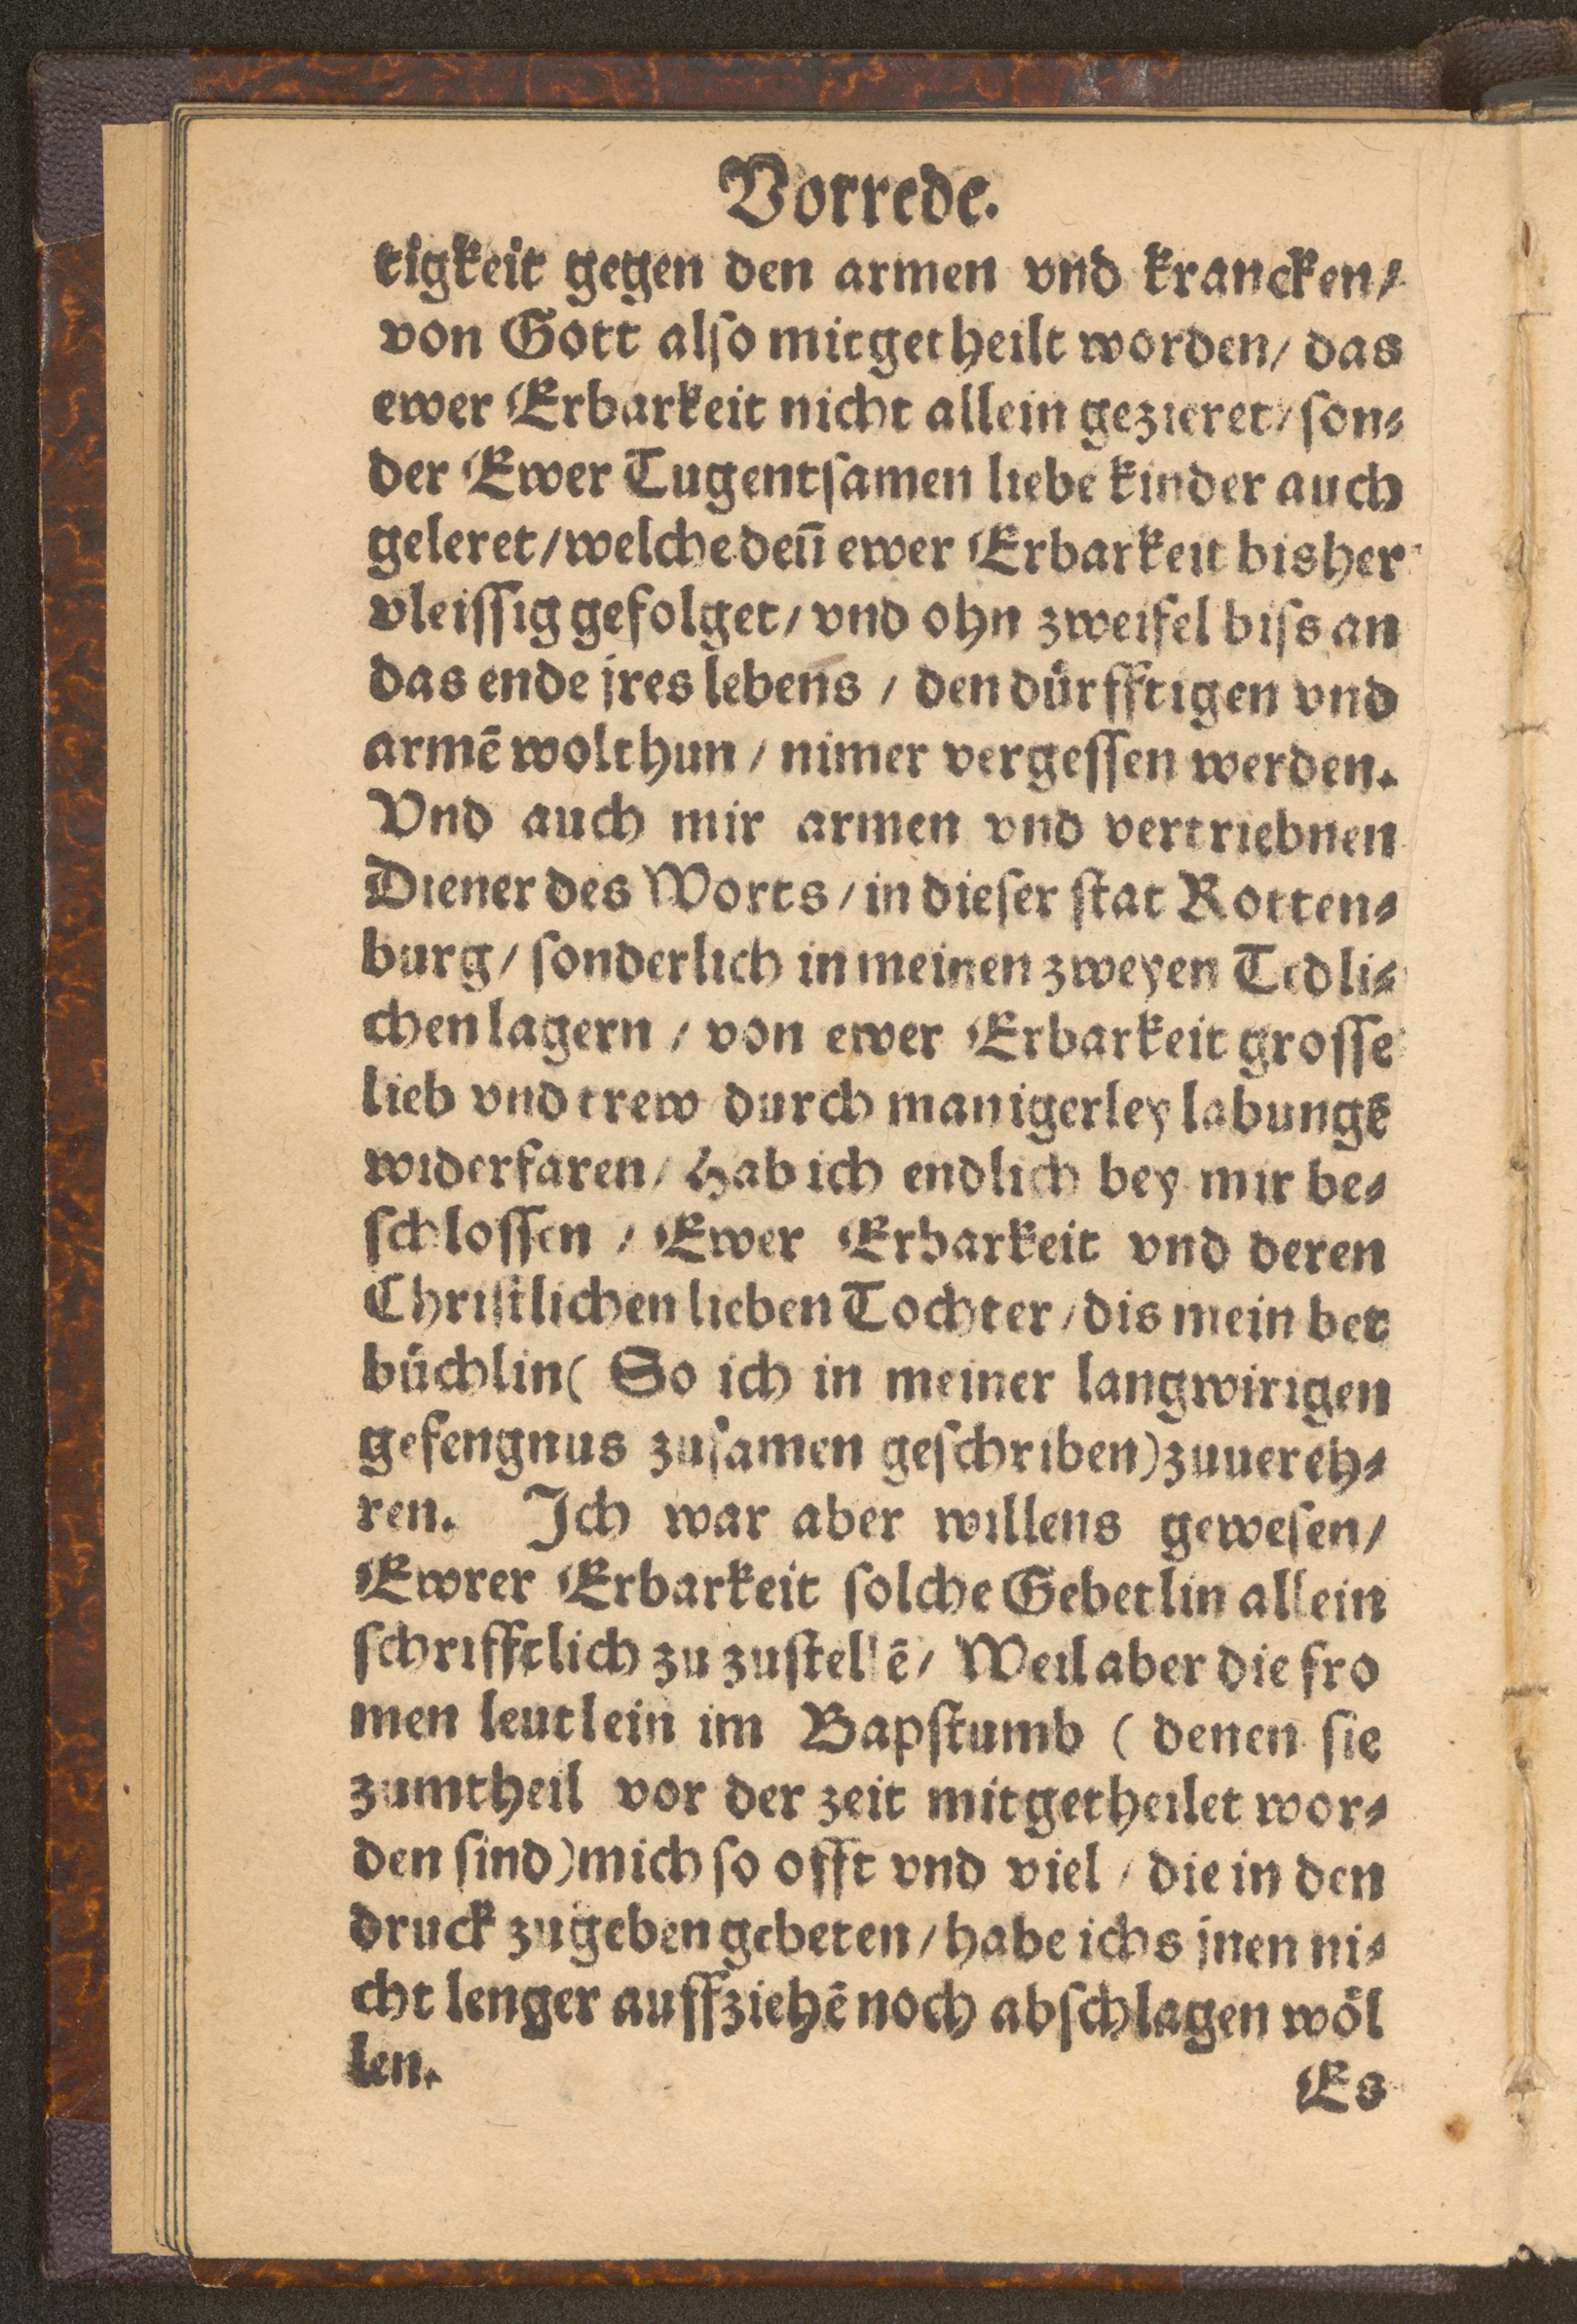 Vorrede.
tigkeit gegen den armen vnd krancken/
von Gott also mitgetheilt worden/ das
ewer Erbarkeit nicht allein gezieret/ son⸗
der Ewer Tugentsamen liebe kinder auch
geleret/welche deñ ewer Erbarkeit bisher
vleissig gefolget/ vnd ohn zweifel biss an
das ende jres lebens / den dürfftigen vnd
armē wolthun / nimer vergessen werden.
Vnd auch mir armen vnd vertriebnen
Diener des Worts / in dieser stat Rotten⸗
burg/ sonderlich in meinen zweyen Tödli⸗
chen lagern / von ewer Erbarkeit grosse
lieb vnd trew durch manigerley labungē
widerfaren/ Hab ich endlich bey mir be⸗
schlossen / Ewer Erbarkeit vnd deren
Christlichen lieben Tochter/dis mein bet
büchlin( So ich in meiner langwirigen
gefengnus zusamen geschriben)zuuereh⸗
ren. Ich war aber willens gewesen/
Ewrer Erbarkeit solche Gebetlin allein
schrifftlich zu zustellē/ Weil aber die fro
men leutlein im Bapstumb ( denen sie
zumtheil vor der zeit mitgetheilet wor⸗
den sind)mich so offt vnd viel / die in den
druck zugeben gebeten/habe ichs jnen ni⸗
cht lenger auffziehē noch abschlagen wöl
len.
Es